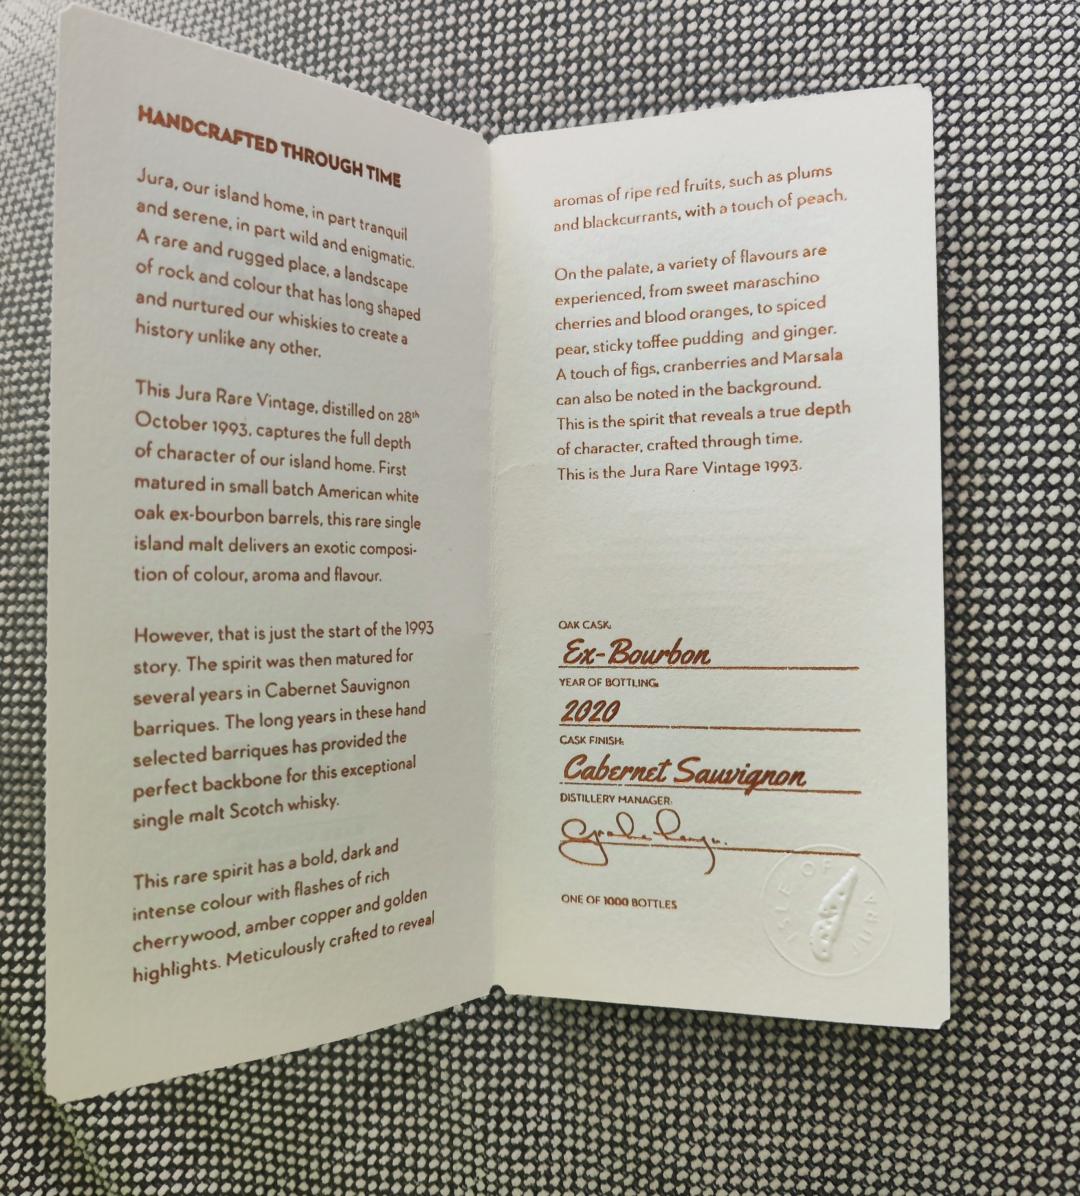 HANDCRAFTED THROUGH TIME
Jura, our island home, in part tranquil
and serene, in part wild and enigmatic.
A rare and rugged place, a landscape
of rock and colour that has long shaped
and nurtured our whiskies to create a
history unlike any other.
This Jura Rare Vintage, distilled on 28th
October 1993, captures the full depth
of character of our island home. First
matured in small batch American white
oak ex-bourbon barrels, this rare single
island malt delivers an exotic composi-
tion of colour, aroma and flavour.
However, that is just the start of the 1993
story. The spirit was then matured for
several years in Cabernet Sauvignon
barriques. The long years in these hand
selected barriques has provided the
perfect backbone for this exceptional
single malt Scotch whisky.
This rare spirit has a bold, dark and
intense colour with flashes of rich
cherrywood, amber copper and golden
highlights. Meticulously crafted to reveal
aromas of ripe red fruits, such as plums
and blackcurrants, with a touch of peach.
On the palate, a variety of flavours are
experienced, from sweet maraschino
cherries and blood oranges, to spiced
pear, sticky toffee pudding and ginger.
A touch of figs, cranberries and Marsala
can also be noted in the background.
This is the spirit that reveals a true depth
of character, crafted through time.
This is the Jura Rare Vintage 1993.
OAK CASK:
Ex-Bourbon
YEAR OF BOTTLING:
2020
CASK FINISH:
Cabernet Sauvignon
DISTILLERY MANAGER:
ONE OF 1000 BOTTLES
ISLE OF JURA